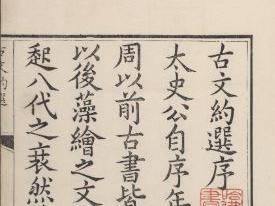 古文約選序
太史公自序年
周以前古書皆
以後藻繪之文
起八代之衰然